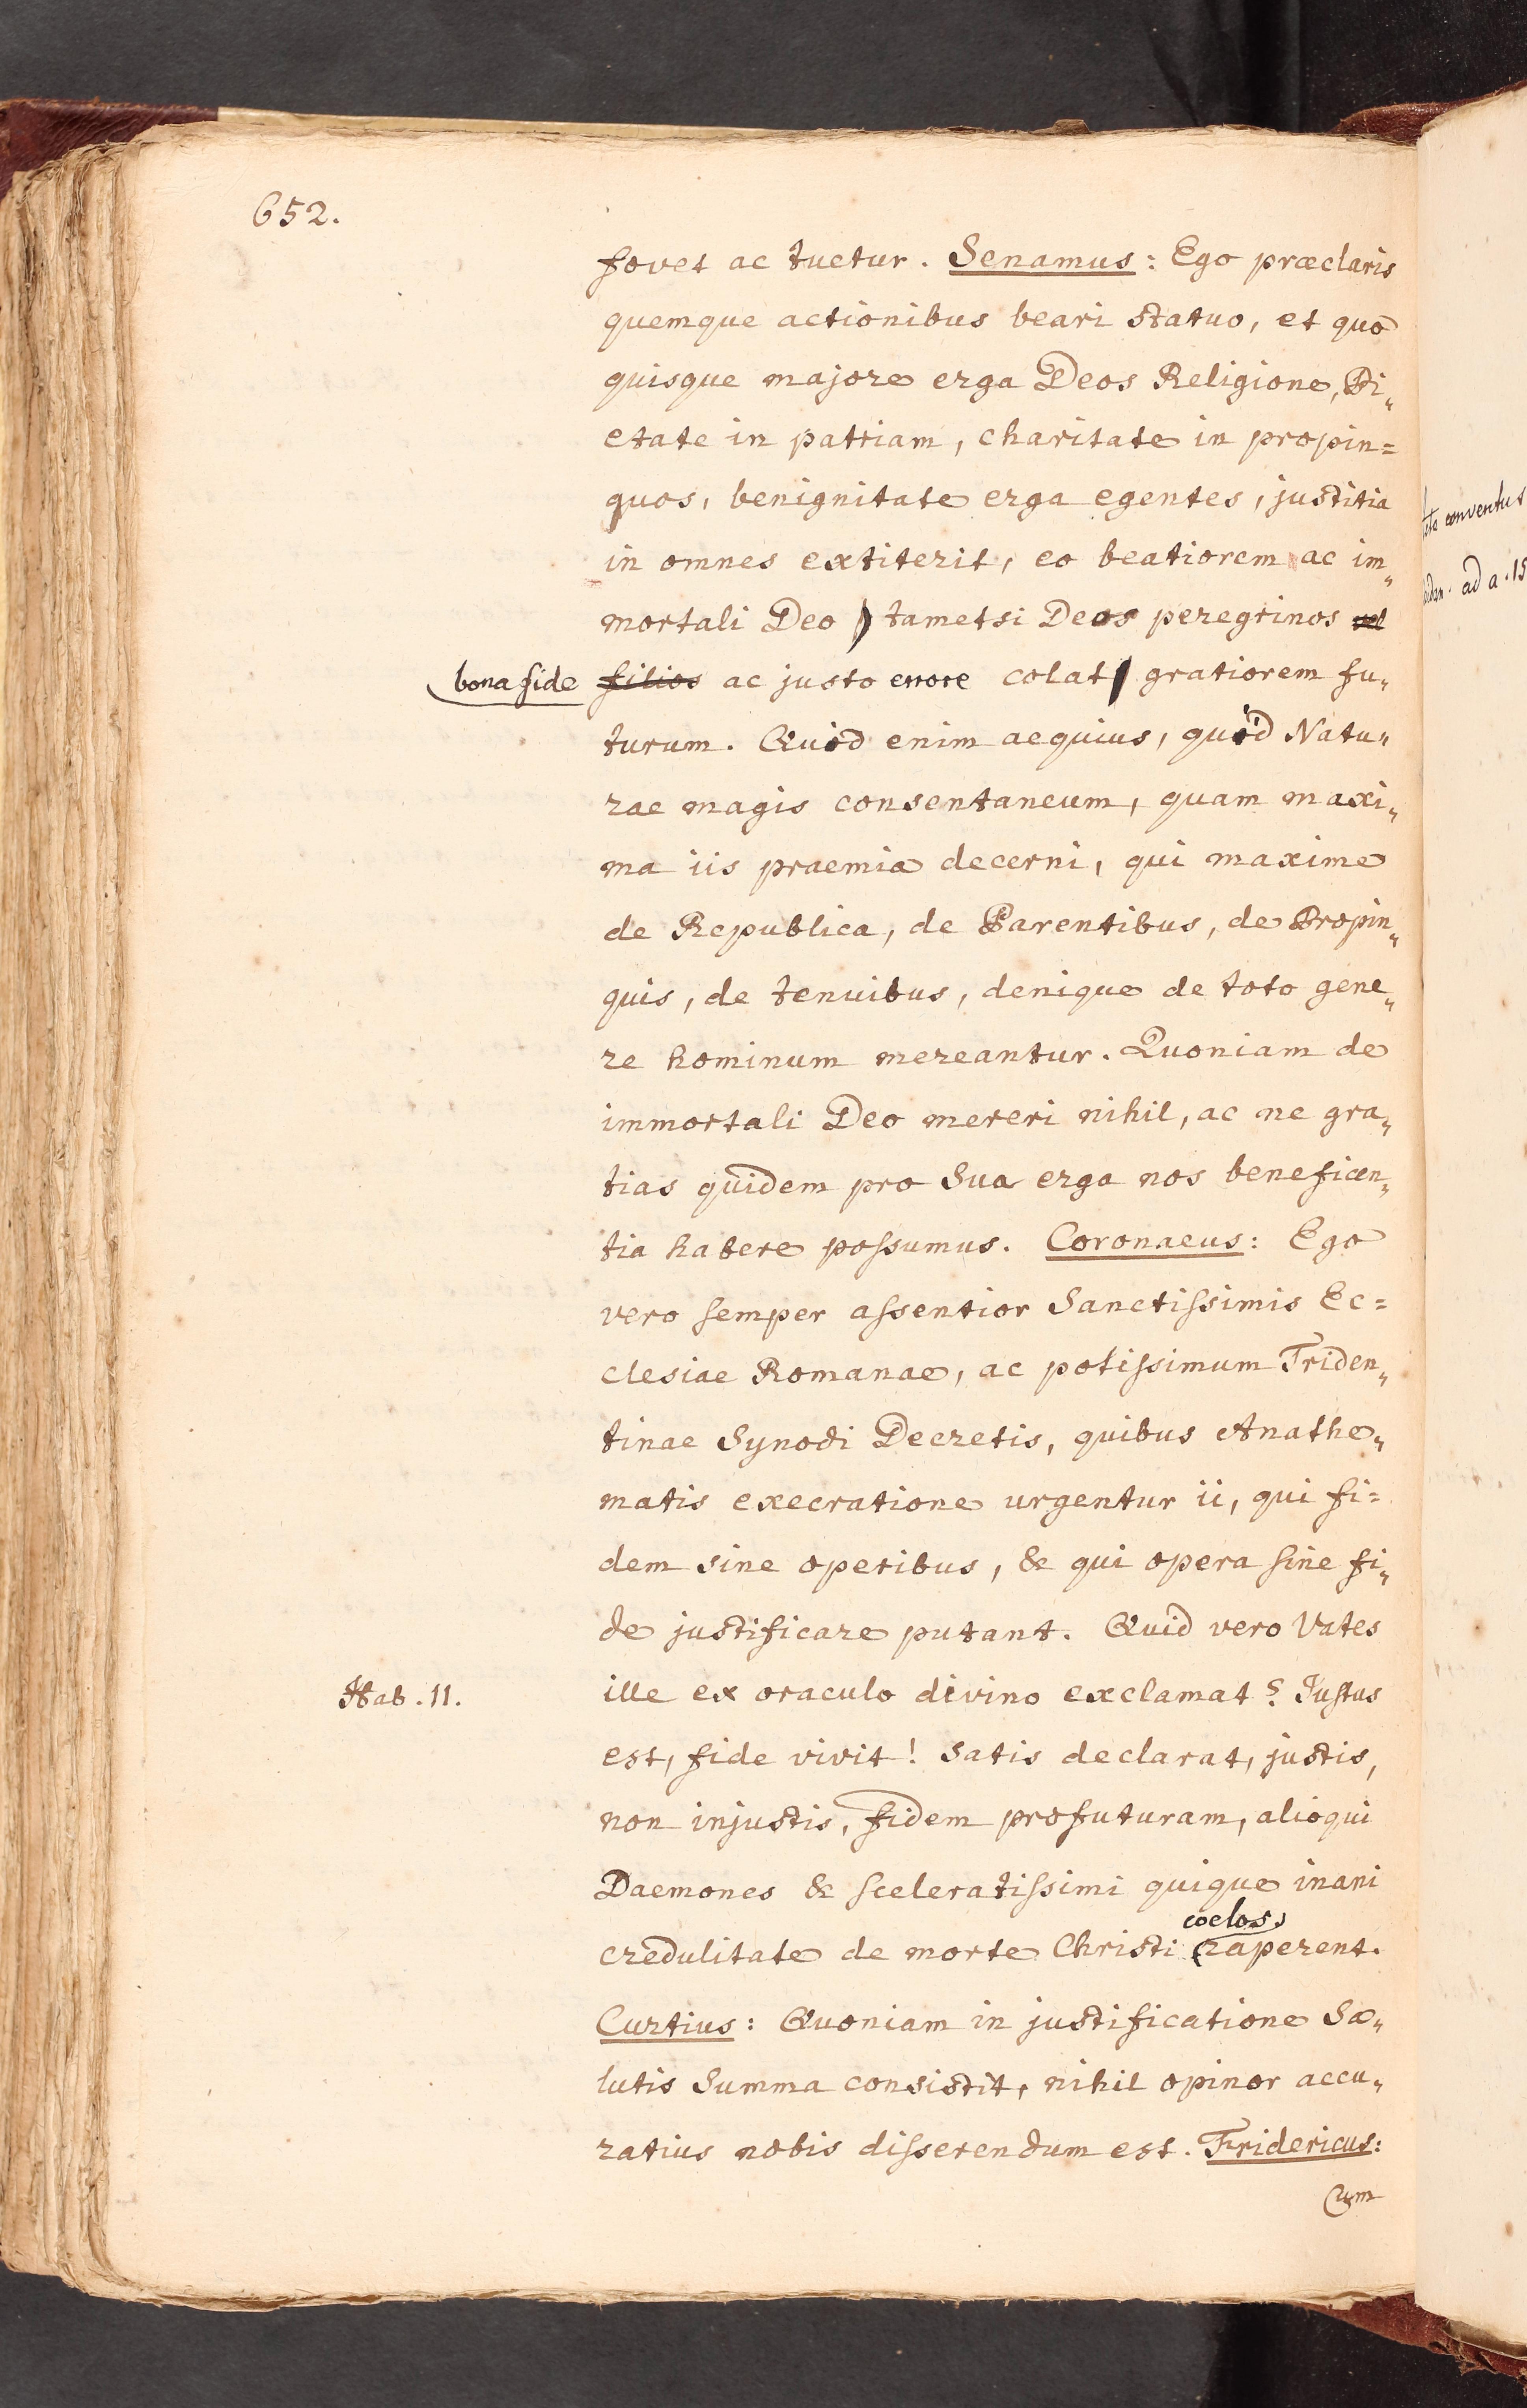 652.
fovet ac tuetur. Senamus: Ego præclaris
quemque actionibus beari statuo, et quo
quisque majore erga Deos Religione, Pi„
etate in patriam, charitate in propin=
quos, benignitate erga egentes, justitia
in omnes extiterit, eo beatiorem ac im„
mortali Deo ) tametsi Deos peregrinos vel
bona fide filios ac justo errore colat gratiorem fu„
turum. Quid enim aequius, quid Natu„
rae magis consentaneum, quam maxi„
ma iis praemia decerni, qui maxime
de Republica, de Parentibus, de Propin„
quis, de tenuibus, denique de toto gene„
re hominum mereantur. Quoniam de
immortali Deo mereri nihil, ac ne gra„
tias quidem pro Sua erga nos beneficen„
tia habere possumus. Coronaeus: Ego
vero semper assentior Sanctissimis Ec=
clesiae Romanae, ac potissimum Triden„
tinae Synodi Decretis, quibus Anathe„
matis execratione urgentur ii, qui fi=
dem sine operibus, & qui opera sine fi„
de justificare putant. Quid vero Vates
Hab. 11. ille ex oraculo divino exclamat? Justus
est, fide vivit! Satis declarat, justis,
non injustis, fidem profuturam, alioqui
Daemones & sceleratissimi quique inani
coelos,
credulitate de morte Christi raperent.
Curtius: Quoniam in justificatione Sa„
lutis Summa consistit, nihil opinor accu„
ratius nobis disserendum est. Fridericus:
Cum
conventus
ad a. 15